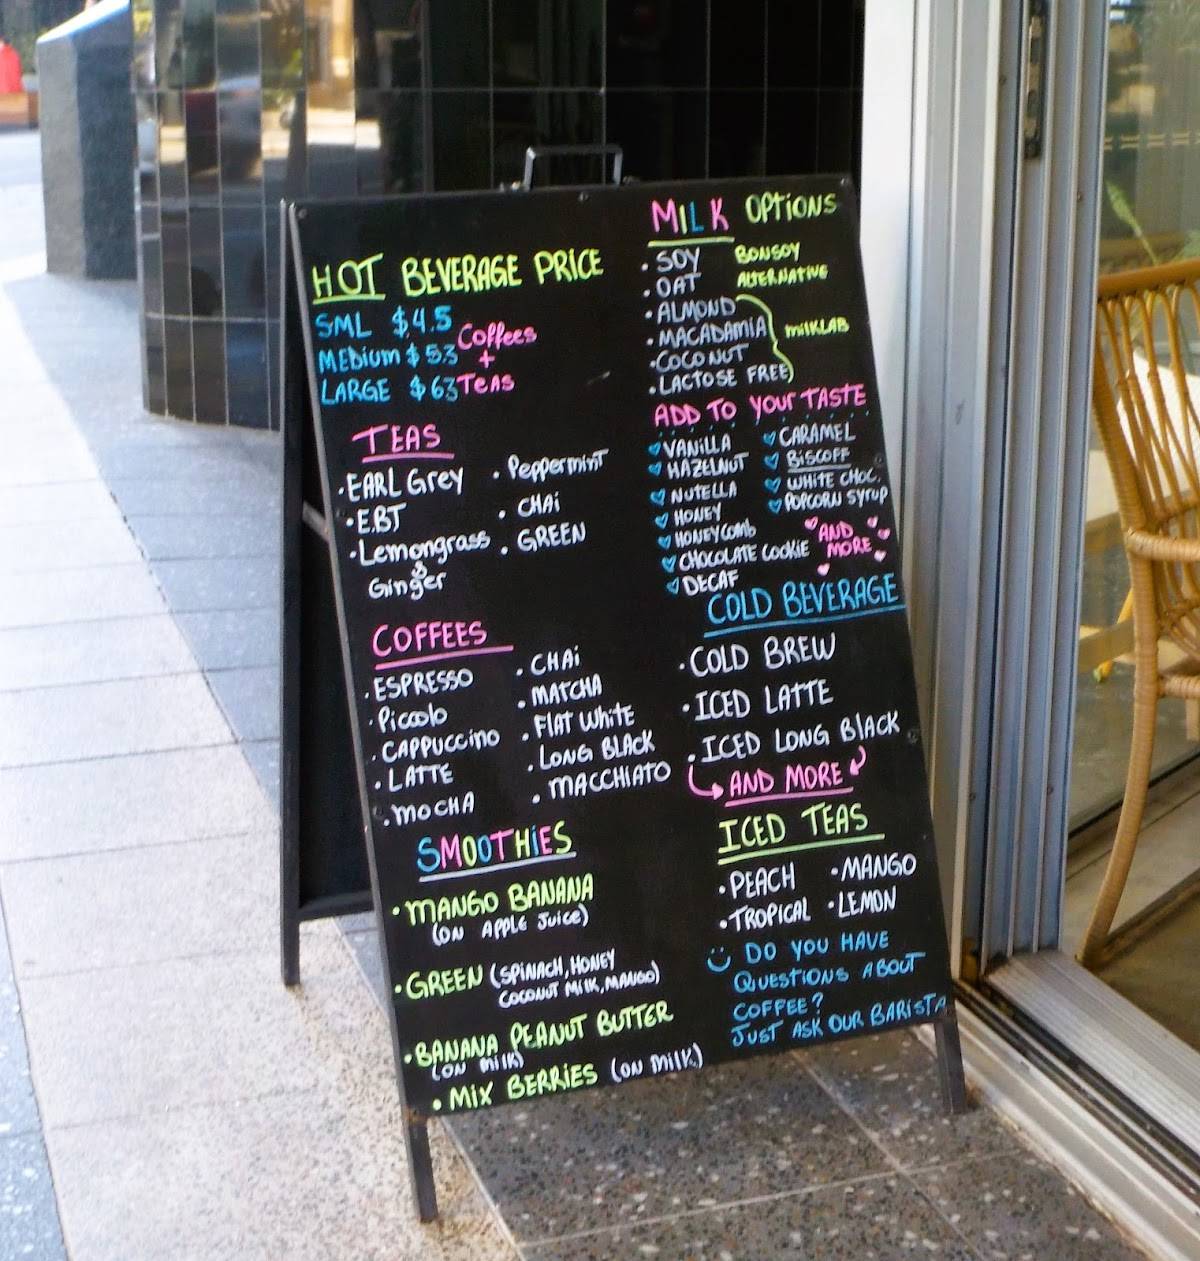 HOT BEVERAGE PRICE
SML $4.5
MEDIUM $53
LARGE $63
Coffees
+
TEAS
TEAS
• EARL Grey
• EBT
• Lemongrass
&
Ginger
• Peppermint
• CHAi
• GREEN
COFFEES
• ESPRESSO
• Piccolo
• CAPPUCCiNO
• LATTE
• MOCHA
• CHAi
• MATCHA
• FlAT WHiTE
• LONG BLACK
• MACCHIATO
SMOOTHiES
• MANGO BANANA
(ON APPLE Juice)
• GREEN (SPINACH, HONEY
COCONUT MILK, MANGO)
• BANANA PEANUT BUTTER
(ON MILK)
• MIX BERRiES (ON MILK)
MILK OPTiONS
• SOY
• OAT
• ALMOND
• MACADAMIA
• COCONUT
• LACTOSE FREE
BONSOY
ALTERNATIVE
MilKLAB
ADD TO YOUr TASTE
VANiLLA
HAZELNUT
NUTELLA
HONEY
HONEYCOMb
CHOCOLATE COOKIE
DECAF
CARAMEL
BISCOFF
WHITE CHOC.
POPCORN SYrUP
AND
MORE
COLD BEVERAGE
• COLD BREW
• ICED LATTE
• ICED LONG BlACK
AND MORE
ICED TEAS
• PEACH
• TROPICAL
• MANGO
• LEMON
DO YOU HAVE
QUESTIONS ABOUT
COFFEE?
JUST ASK OUR BARiSTA